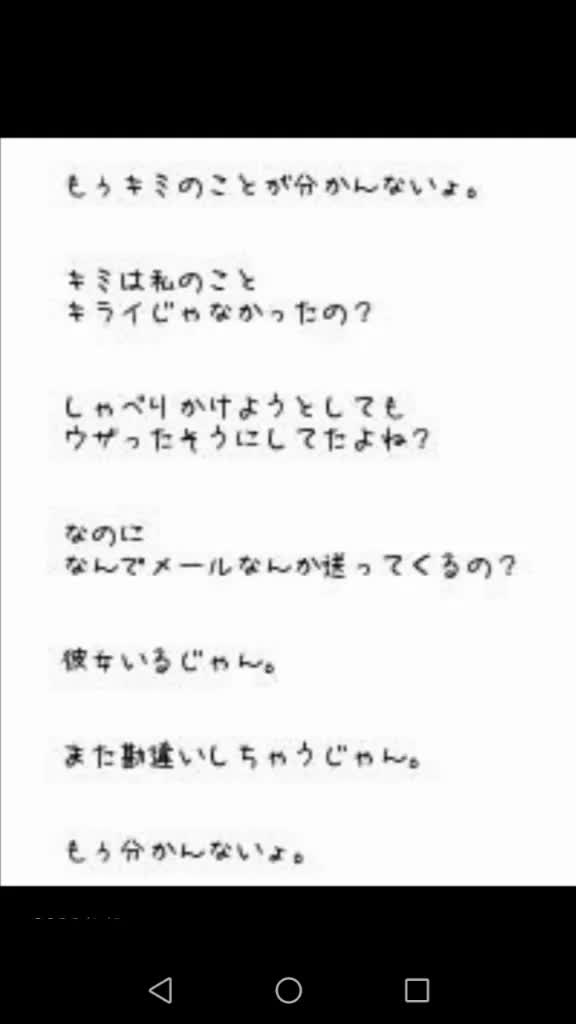 もぅキミのことが分かんないょ。
キミは私のこと
キライじゃなかったの？
しゃべりかけようとしても
ウザったそうにしてたよね？
なのに
なんでメールなんか送ってくるの？
彼女いるじゃん。
また勘違いしちゃうじゃん。
もぅ分かんないょ。